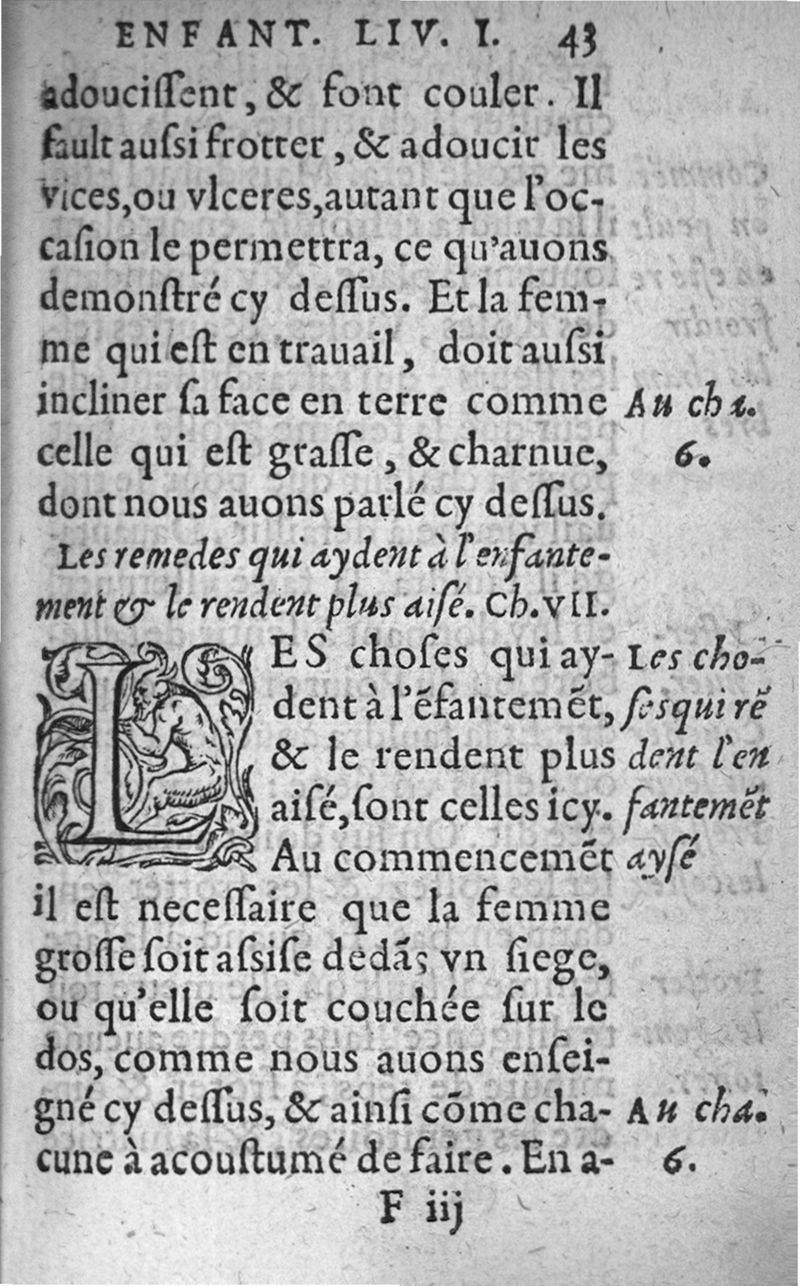 ENFANT. LIV. I. 43
adouciſſent, & font couler. Il
fault auſsi frotter, & adoucir les
vices, ou vlceres, autant que l'oc-
caſion le permettra, ce qu'auons
demonſtré cy deſſus. Et la fem-
me qui eſt en trauail, doit auſsi
incliner ſa face en terre comme
Au cha.
celle qui eſt graſſe, & charnue,
6.
dont nous auons parlé cy deſſus.
Les remedes qui aydent à l'enfante-
ment & le rendent plus aiſé. Ch. VII.
LES choſes qui ay-
Les cho-
dent à l'ēfantemēt,
ſes qui rē
& le rendent plus
dent l'en
aiſé, ſont celles icy.
fantemēt
Au commencemēt
ayſé
il eſt neceſſaire que la femme
groſſe ſoit aſsiſe dedãs vn ſiege,
ou qu'elle ſoit couchée ſur le
dos, comme nous auons enſei-
gné cy deſſus, & ainſi cõme cha-
Au cha.
cune à acouſtumé de faire. En a-
6.
F iij